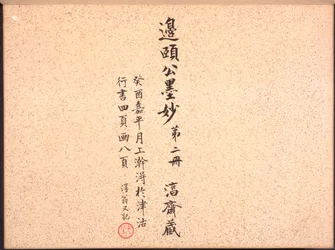 邊頤公墨妙 第二冊 㵎齋藏
癸酉嘉平月上澣得於津沽
行書四頁畫八頁 澤翁又記